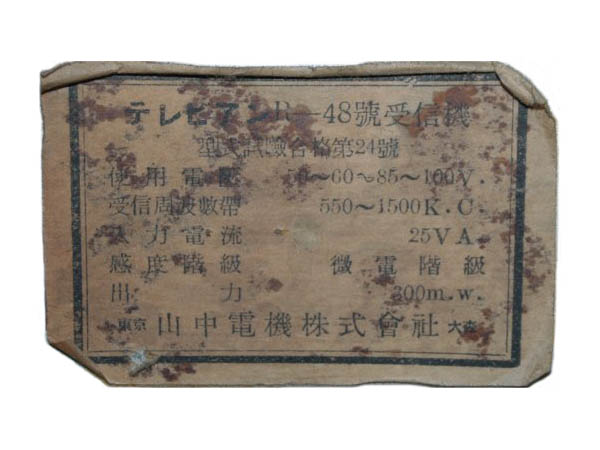 テレビアンR—48號受信機
型式試驗合格第24號
使用電壓 50~60~85~100V.
受信周波數帶 550~1500K.C.
入力電流 25VA.
感度階級 微電階級
出力 300m.w.
東京 山中電機株式會社 大森